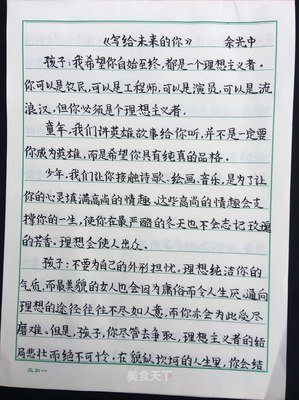 《写给未来的你》 余光中
孩子:我希望你自始至终,都是一个理想主义者。
你可以是农民,可以是工程师,可以是演员,可以是流
浪汉,但你必须是个理想主义者。
童年,我们讲英雄故事给你听,并不是一定要
你成为英雄,而是希望你具有纯真的品格。
少年,我们让你接触诗歌、绘画、音乐,是为了让
你的心灵填满高尚的情趣。这些高尚的情趣会支
撑你的一生,使你在最严酷的冬天也不会忘记玫瑰
的芳香。理想会使人出众。
孩子:不要为自己的外形担忧。理想纯洁你的
气质,而最美貌的女人也会因为庸俗而令人生厌。通向
理想的途径往往不尽如人意,而你会为此受尽
磨难。但是,孩子,你尽管去争取,理想主义者的结
局悲壮而绝不可怜。在貌似坎坷的人生里,你会结
三加一
美食天下